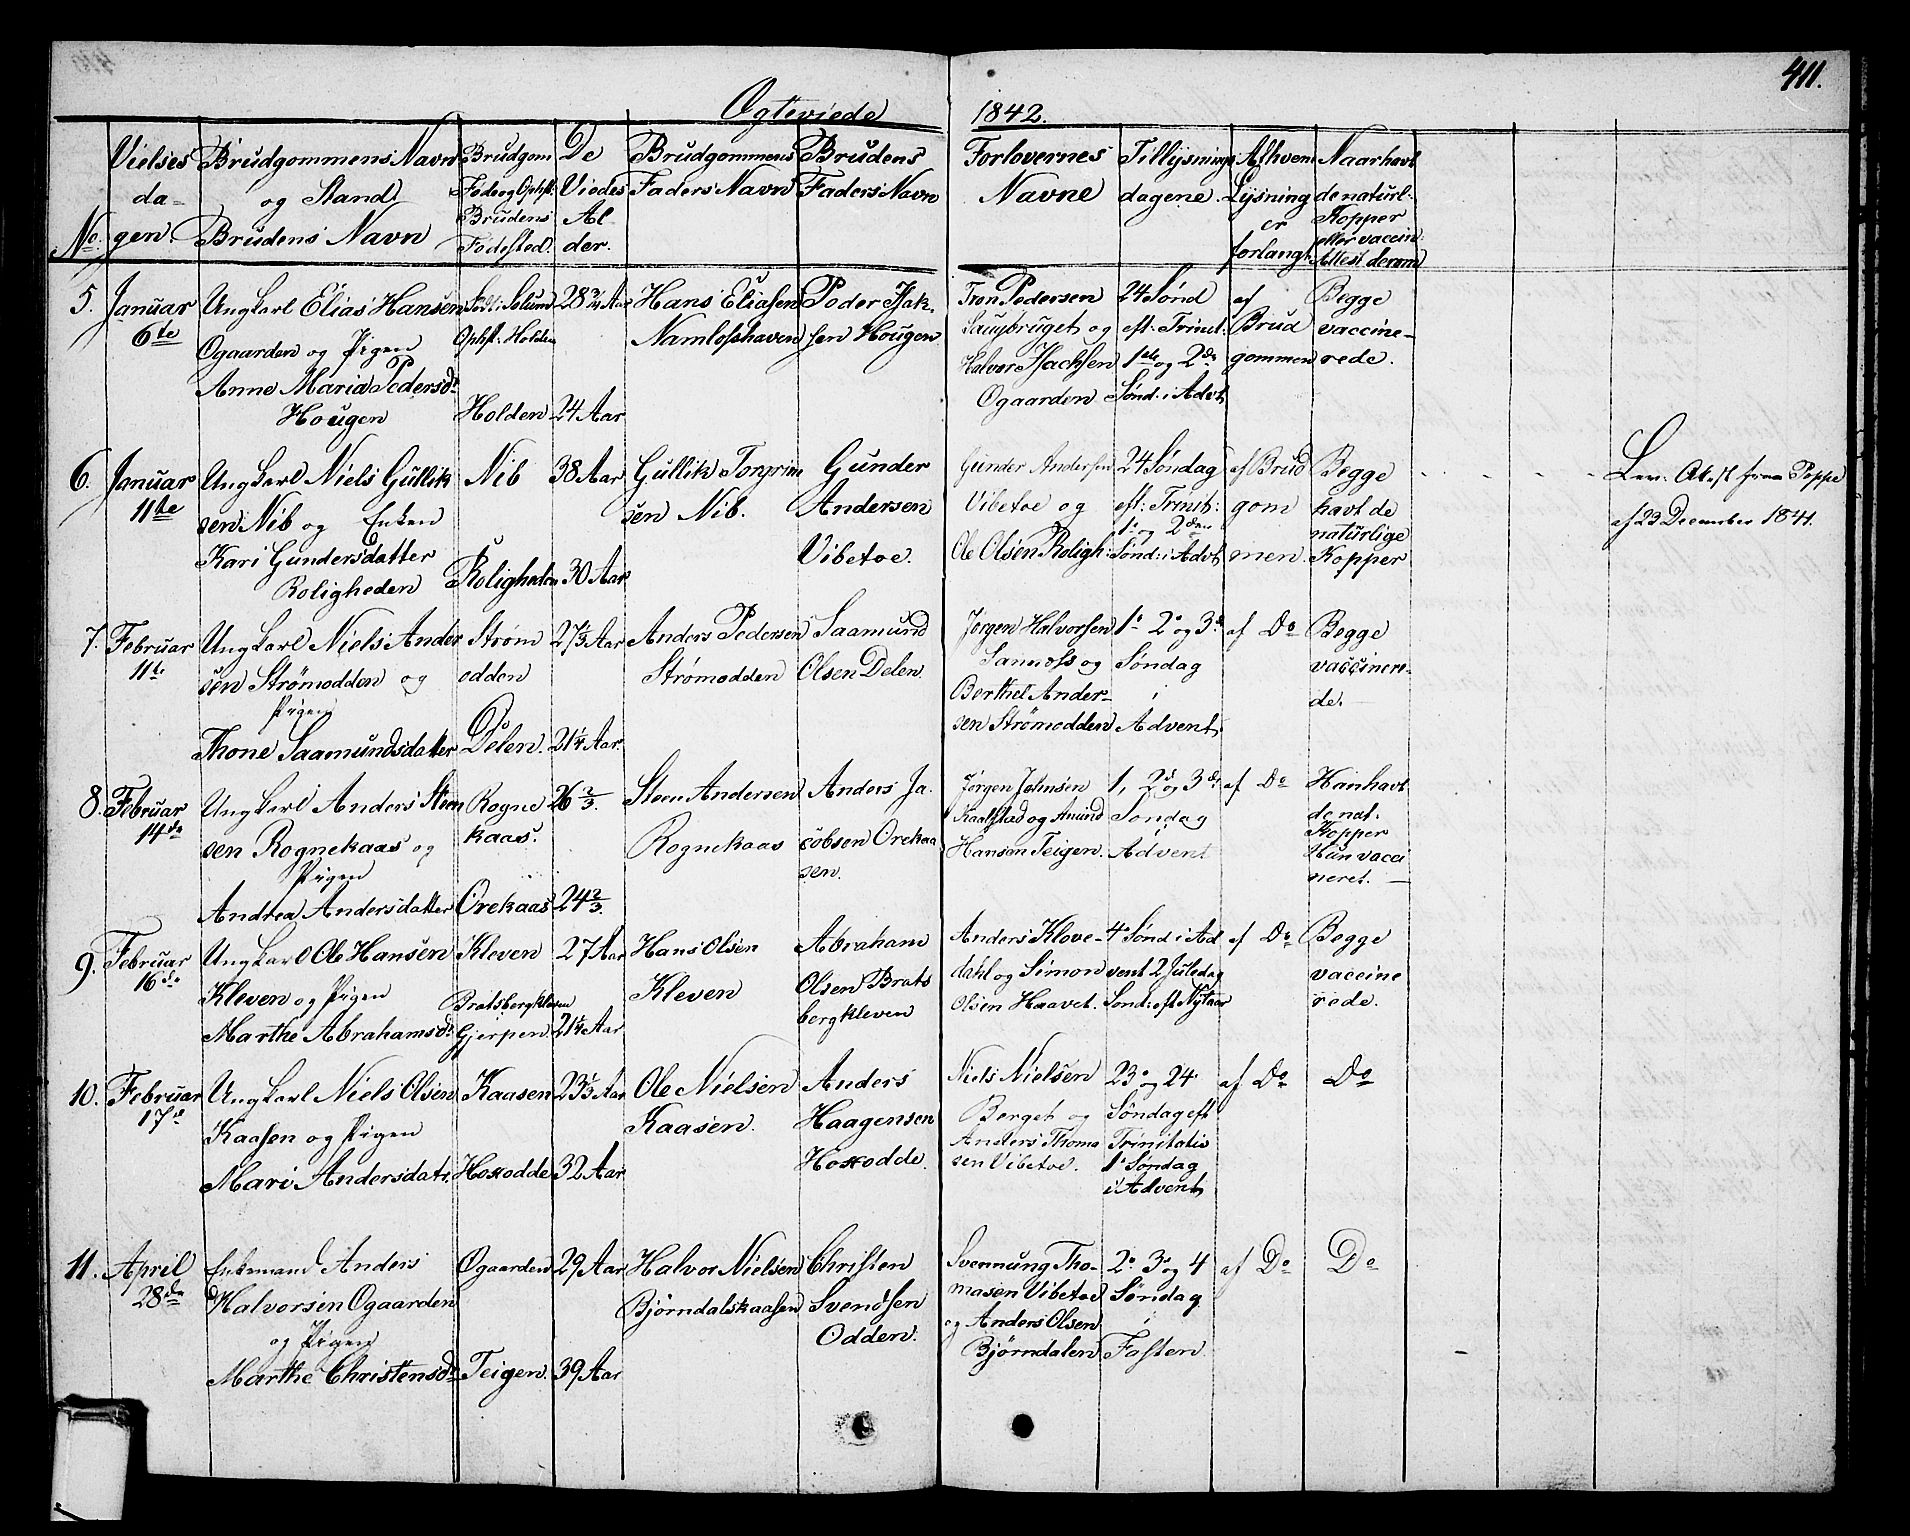 411.
Ægteviede 1842.
No.
Vielses da- gen.
Brudgommens Navn og Stand Brudens Navn
Brudgom Føde og Ophst: Brudens Fødested.
De Viedes Al- der.
Brudgommens Faders Navn
Brudens Faders Navn
Forlovernes Navne
Tillysnings dagene.
Af hvem Lysning er forlangt
Naar havt de naturl: Kopper eller vaccin: Attest derom
5. Januar 6te
Ungkarl Elias Hansen
Ogaarden og Pigen
Anne Maria Pedersd:
Hougen
Født: Solum
Ophst: Holden
Holden
28 3/4 Aar
24 Aar
Hans Eliasen
Namlosshaven
Peder Isak-
sen Hougen
Tron Pedersen
Saugbruget og
Halvor Isachsen
Ogaarden
24 Sønd
eft: Trinit:
1ste og 2de
Sønd: i Advt
af
Brud
gommen
Begge
vaccine-
rede.
6. Januar 11te
Ungkarl Niels Gullik
sen Nib og Enken
Kari Gundersdatter
Roligheden
Nib
Roligheden
38 Aar
30 Aar
Gullik Torgrim
sen Nib.
Gunder
Andersen
Vibetoe.
Gunder Andersen
Vibetoe og
Ole Olsen Roligh:
24 Søndag
eft: Trinit:
1ste og 2den
Sønd: i Advt
af Brud
gom
men
Begge
havt de
naturlige
Kopper
Lev: Atest fra Poppe
af 23 December 1841.
7. Februar 11te
Ungkarl Niels Ander
sen Strømodden og
Pigen
Thone Saamundsdatter
Strøm
odden
Delen.
27 1/2 Aar
21 1/4 Aar.
Anders Pedersen
Strømodden
Saamund
Olsen Delen.
Jørgen Halvorsen
Sannoss og
Berthel Ander-
sen Strømodden
1ste 2de og 3de
Søndag
i
Advent
af Do
Begge
vaccinere-
de.
8. Februar 14de
Ungkarl Anders Steen
sen Rognekaas og
Pigen
Andrea Andersdatter
Rogne
kaas.
Orekaas
26 2/3.
24 2/3.
Steen Andersen
Rognekaas
Anders Ja-
cobsen Orekaa
sen.
Jørgen Johnsen
Kaasstad og Amund
Hansen Teigen.
1, 2d og 3d
Søndag
Advent
af Do
Han havt
de nat.
Kopper
Hun vacci
neret.
9. Februar 16de
Ungkarl Ole Hansen
Kleven og Pigen
Marthe Abrahamsd:
Kleven
Bratsbergkleven
Gjerpen
27 Aar
21 1/4 Aar
Hans Olsen
Kleven
Abraham
Olsen Brats
bergkleven
Anders Klove-
dahl og Simon
Olsen Haavet.
4 Sønd i Ad
vent 2 Juledag
Sønd: eft Nytaar
af Do
Begge
vaccine
rede.
10. Februar 17de
Ungkarl Niels Olsen
Kaasen og Pigen
Mari Andersdatr.
Kaasen
Hoxodde
23 1/2 Aar
32 Aar
Ole Nielsen
Kaasen.
Anders
Haagensen
Hoxodde.
Niels Nielsen
Berget og
Anders Thoma
sen Vibetoe.
23de og 24
Søndag eft
Trinitatis
1ste Søndag
i Advent
af Do
Do
11. April 28de
Enkemand Anders
Halvorsen Ogaarden
og Pigen
Marthe Christensd:
Ogaarden
Teigen.
29 Aar
39 Aar
Halvor Nielsen
Bjørndalskaasen
Christen
Svendsen
Odden.
Svennung Tho-
masen Vibetoe
og Anders Olsen
Bjørndalen
2de 3de og 4
Søndag
i
Fasten.
af Do
Do